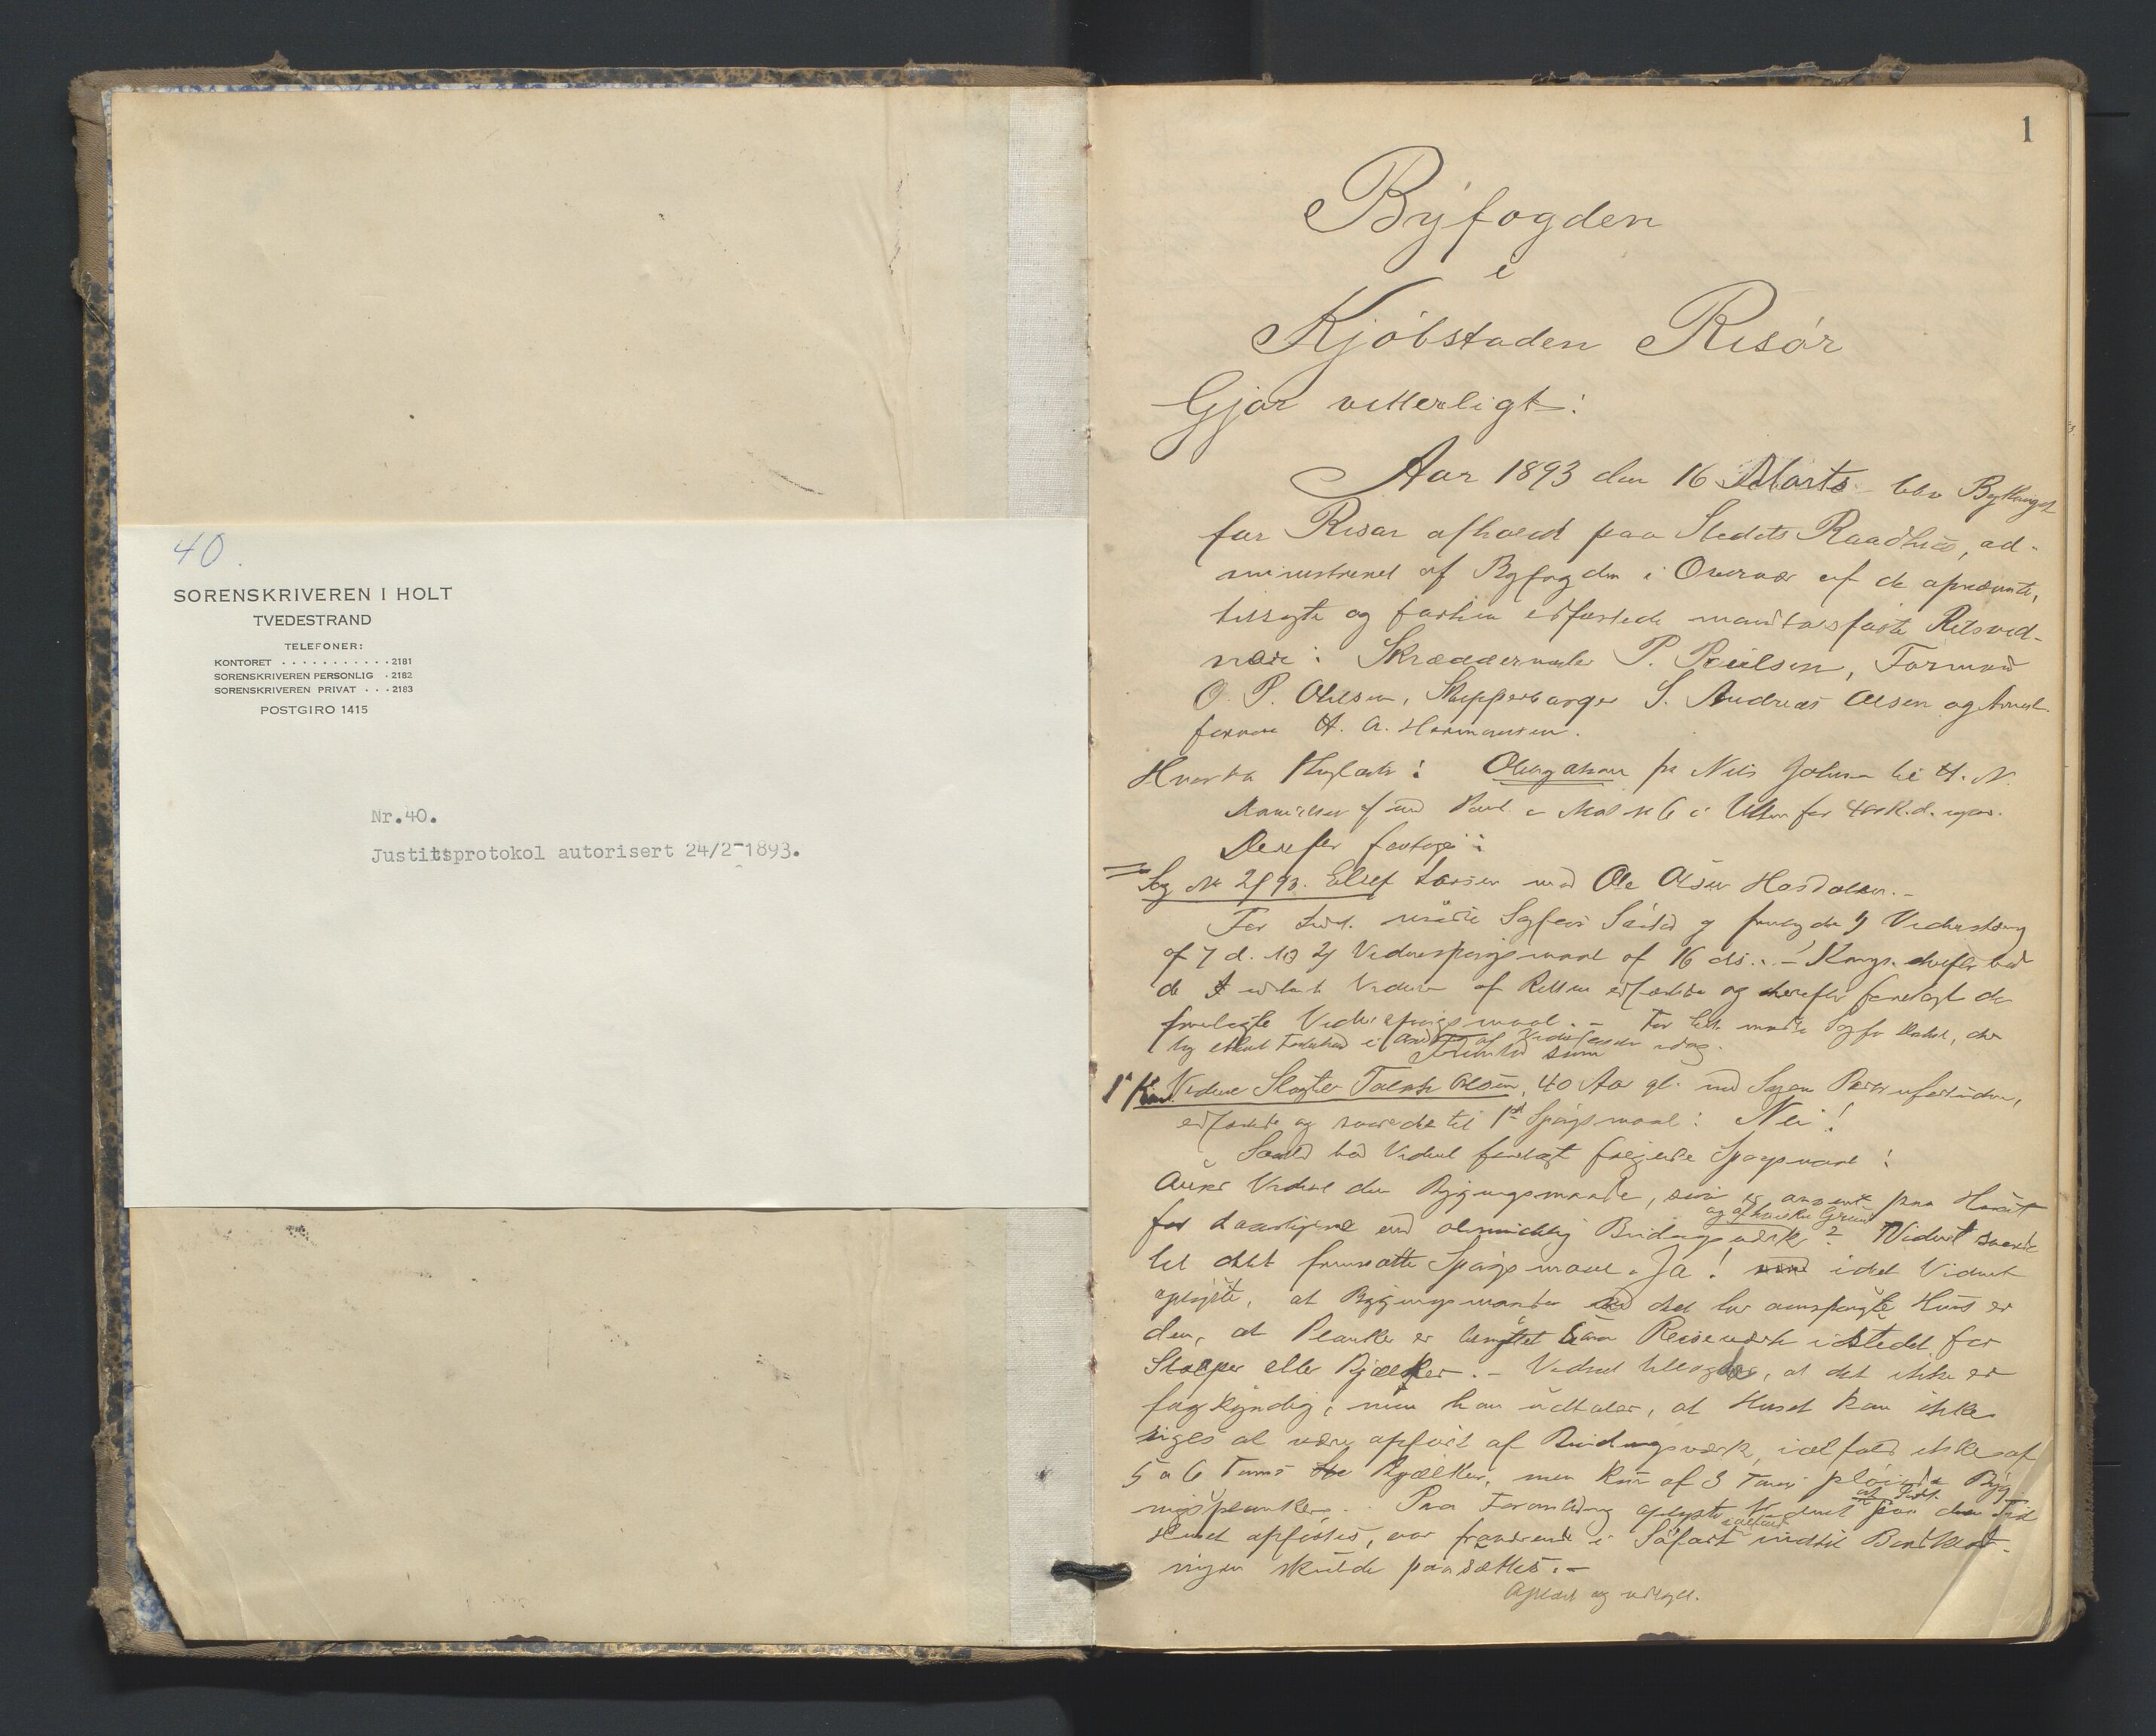 40.
SORENSKRIVEREN I HOLT
TVEDESTRAND
TELEFONER:
KONTORET . . . . . . . . . . . 2181
SORENSKRIVEREN PERSONLIG . 2182
SORENSKRIVEREN PRIVAT . . . 2183
POSTGIRO 1415
Nr.40.
Justitsprotokol autorisert 24/2-1893.
1
Byfogden
i
Kjöbstaden Risör
Gjör vitterligt:
Aar 1893 den 16 Marts blev Bythinget
for Risør afholdt paa Stedets Raadhus, ad-
ministreret af Byfogden i Overvær af de opnævnte,
tilsagte og forhen edfæstede mandtalsførte Retsvid-
ner: Skræddermester P. Paulsen, Formand
O. P. Olsen, Skipperborger S. Andreas Olsen og
H. A. Hermansen.
Hvorda : Obligation fra Nils til H. N.
med Pant i Mat N 6 i for 400
Derefter foretoges:
Sag No 2/93. Ellef Larsen mod Ole Olsen Hasdalen.-
For mødte Sagfører og fremlagde 1) Vidnestævning
af 7 d. M. 2) Vidnespørgsmaal af 16 ds. -
de Vidner af Retten edfæstede og derefter forelagt de
fremlagte Vidnespørgsmaal. - For mødte Sagfører
i af idag.
1ste Vidne Slagter Olsen, 40 Aar gl. med Sagens Parter ubeslægtet,
edfæstede og svarede til 1ste Spørgsmaal: Nei!
Vidnet forelagt følgende Spørgsmaal:
Anser Vidnet den Bygningsmaade, som er anvendt paa Huset
og af hvilken Grund
for daarligere end almindelig Bindingsværk? Vidnet svarede
til dette fremsatte Spørgsmaal: Ja! idet Vidnet
oplyste, at Bygningsmaaden ved det her omspurgte Hus er
den, at Planker er benyttet som Reiseværk istedet for
Stolper eller Bjælker. - Vidnet tillægger, at det ikke er
fagkyndig, men han udtaler, at Huset kan ikke
siges at være opført af Bindingsværk, ialfald ikke af
5 a 6 Toms Bjælker, men kun af 3 Toms pløiede Byg-
ningsplanker. Paa Foranledning oplyste at Vidnet paa den Tid
Huset opførtes, var fraværende i Söfart indtil Bordklæd-
ningen skulde paasættes.-
Oplæst og vedtaget.